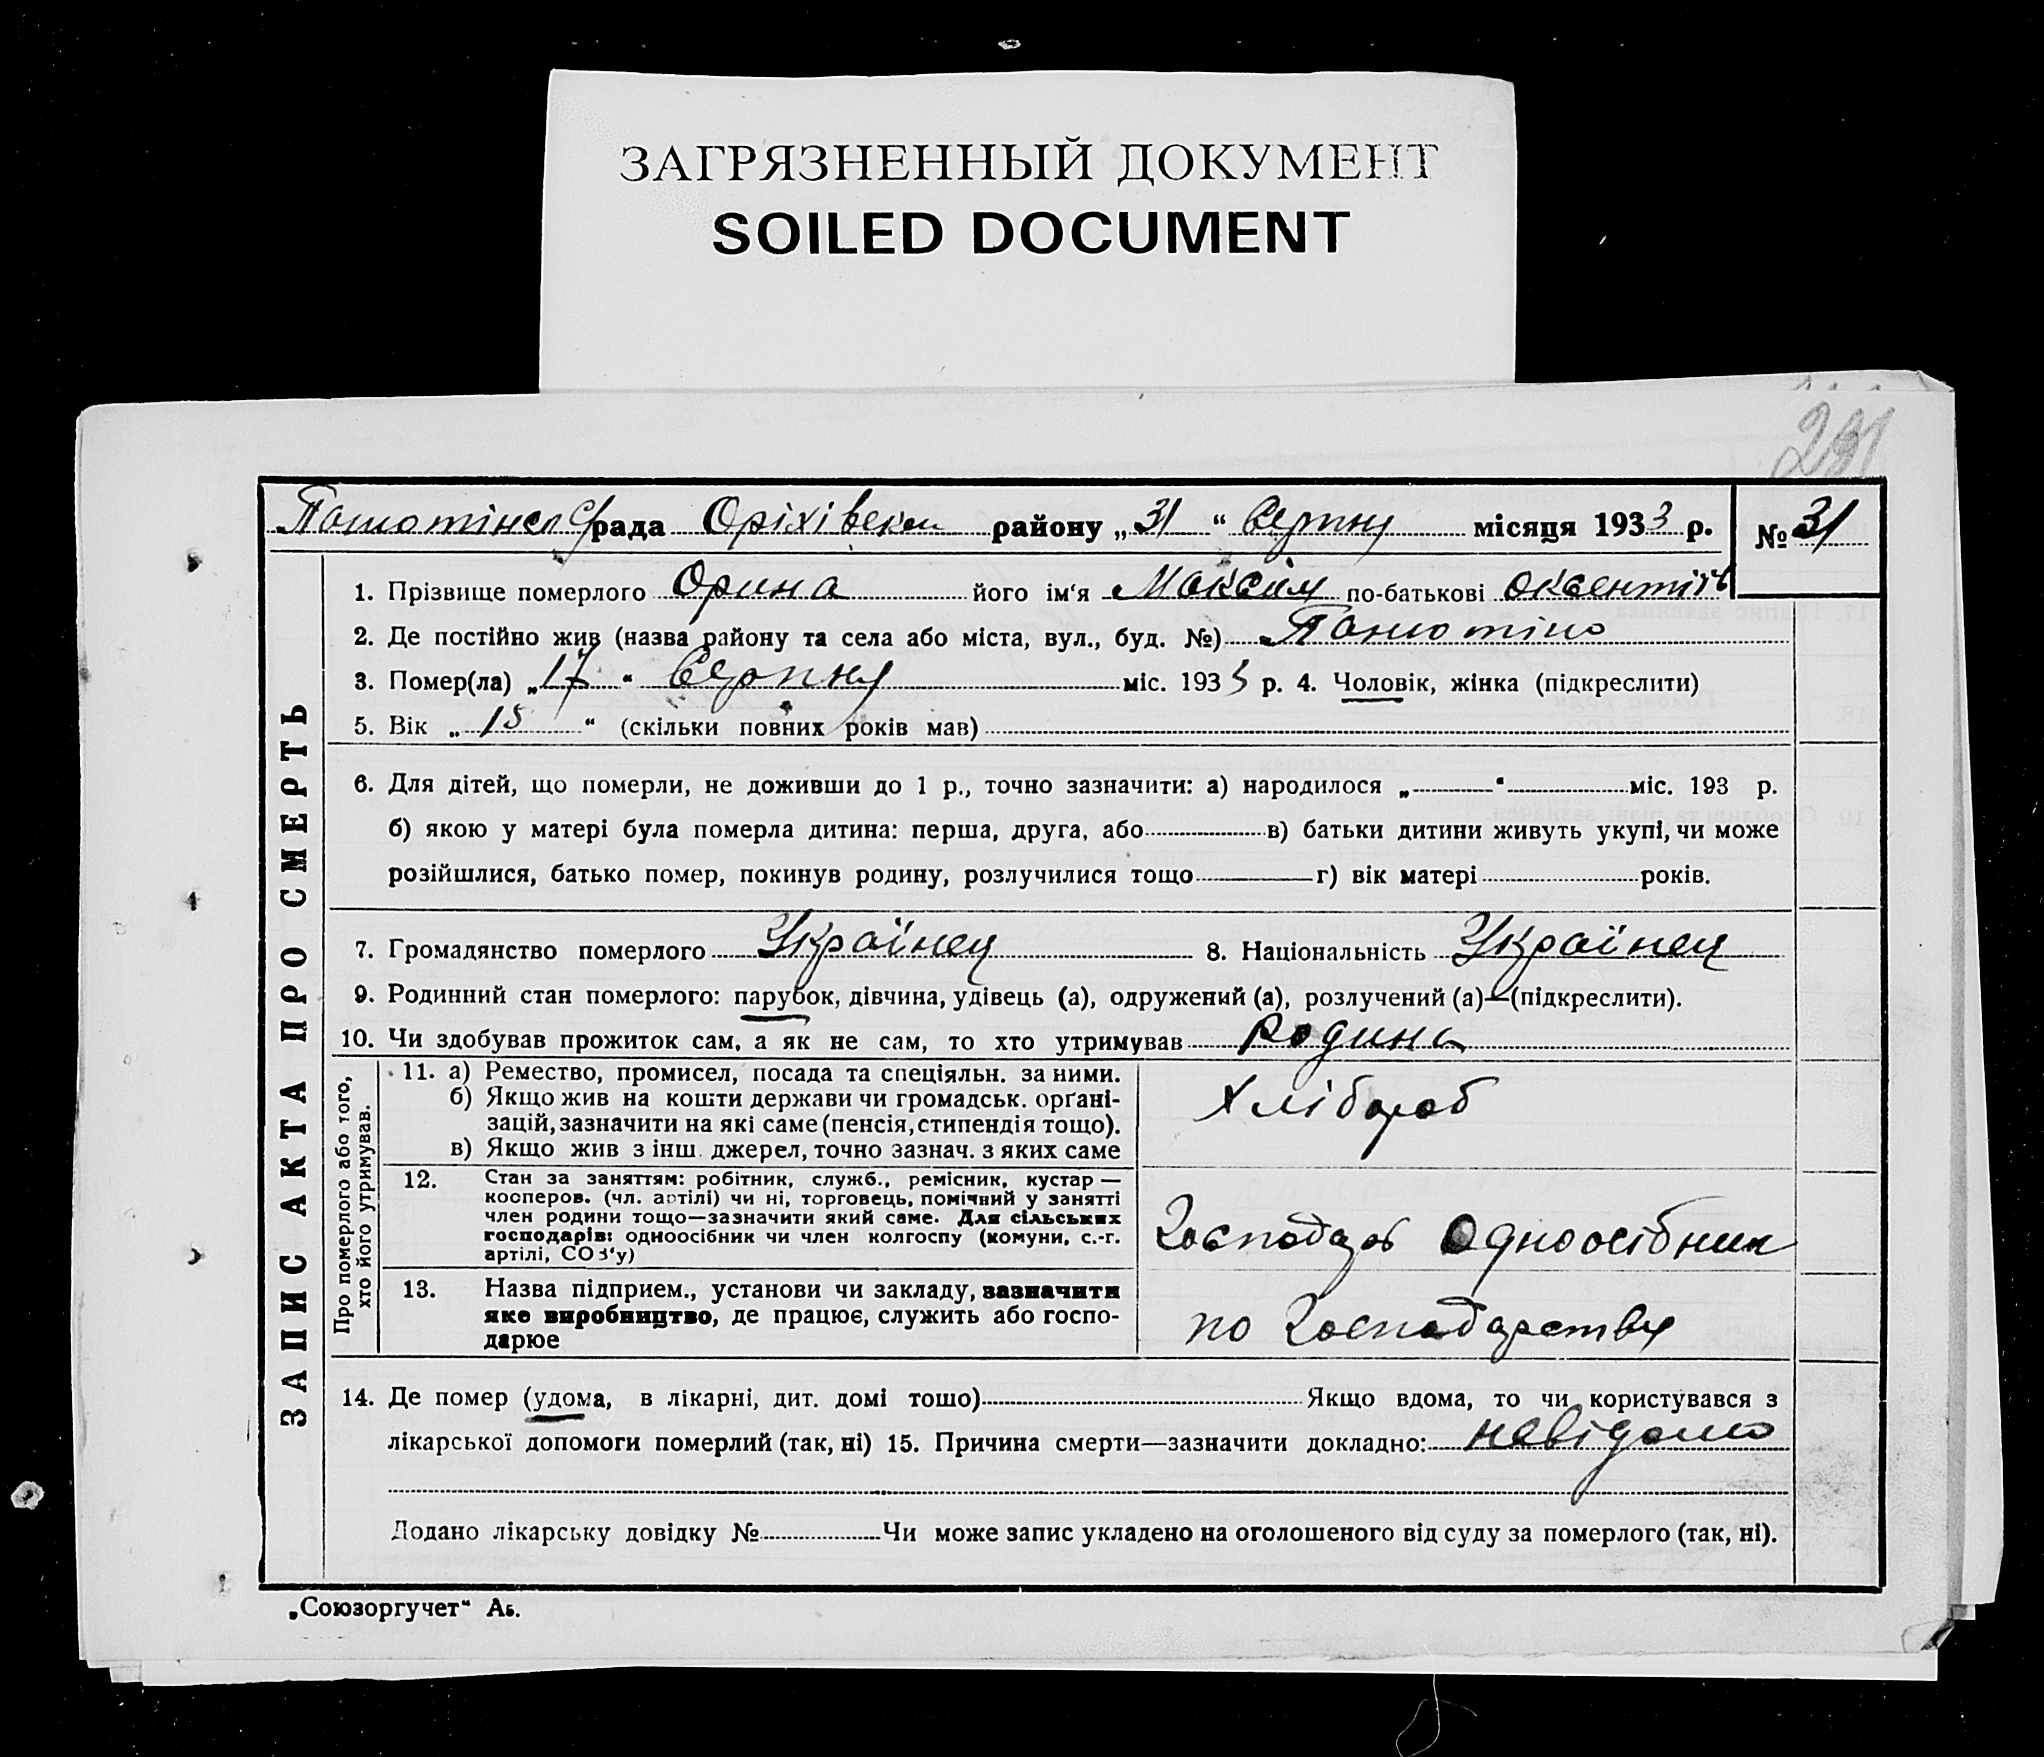 ЗАГРЯЗНЕННЫЙ ДОКУМЕНТ
SOILED DOCUMENT
рада Оріхівськ району „31“ Серпня місяця 1933 р. № 31
ЗАПИС АКТА ПРО СМЕРТЬ
1. Прізвище померлого Орина його ім‘я Максим по-батькові
2. Де постійно жив (назва району та села або міста, вул., буд. №)
3. Помер(ла) „17“ Серпня міс. 1933 р. 4. Чоловік, жінка (підкреслити)
5. Вік „15“ (скільки повних років мав)
6. Для дітей, що померли, не доживши до 1 р., точно зазначити: а) народилося „ “ міс. 193 р.
б) якою у матері була померла дитина: перша, друга, або в) батьки дитини живуть укупі, чи може
розійшлися, батько помер, покинув родину, розлучилися тощо г) вік матері років.
7. Громадянство померлого Українец 8. Національність Українец
9. Родинний стан померлого: парубок, дівчина, удівець (а), одружений (а), розлучений (а)—(підкреслити).
10. Чи здобував прожиток сам, а як не сам, то хто утримував родина
Про померлого або того,
хто його утримував.
11. а) Ремество, промисел, посада та спеціяльн. за ними.
б) Якщо жив на кошти держави чи громадськ. орґані-
зацій, зазначити на які саме (пенсія, стипендія тощо).
в) Якщо жив з інш. джерел, точно зазнач. з яких саме
Хлібороб
12. Стан за заняттям: робітник, служб., ремісник, кустар —
кооперов. (чл. артілі) чи ні, торговець, помічний у занятті
член родини тощо—зазначити який саме. Для сільських
господарів: одноосібник чи член колгоспу (комуни, с.-г.
артілі, СОЗ‘у)
Господар Одноосібник
13. Назва підприєм., установи чи закладу, зазначити
яке виробництво, де працює, служить або госпо-
дарює
по Господарству
14. Де помер (удома, в лікарні, дит. домі тощо) Якщо вдома, то чи користувався з
лікарської допомоги померлий (так, ні) 15. Причина смерти—зазначити докладно: невідомо
Додано лікарську довідку № Чи може запис укладено на оголошеного від суду за померлого (так, ні).
„Союзоргучет“ Аб.